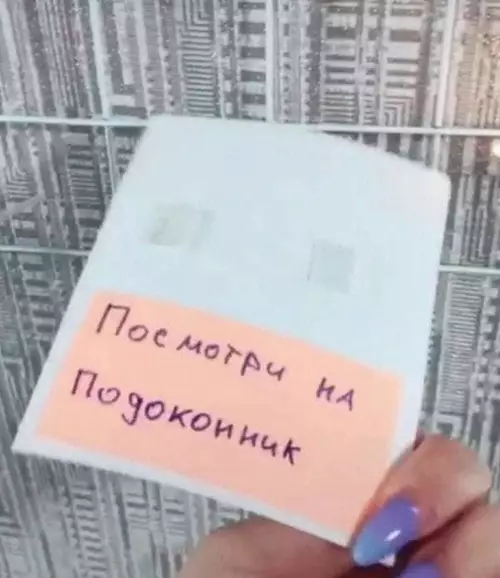 Посмотри на
Подоконник